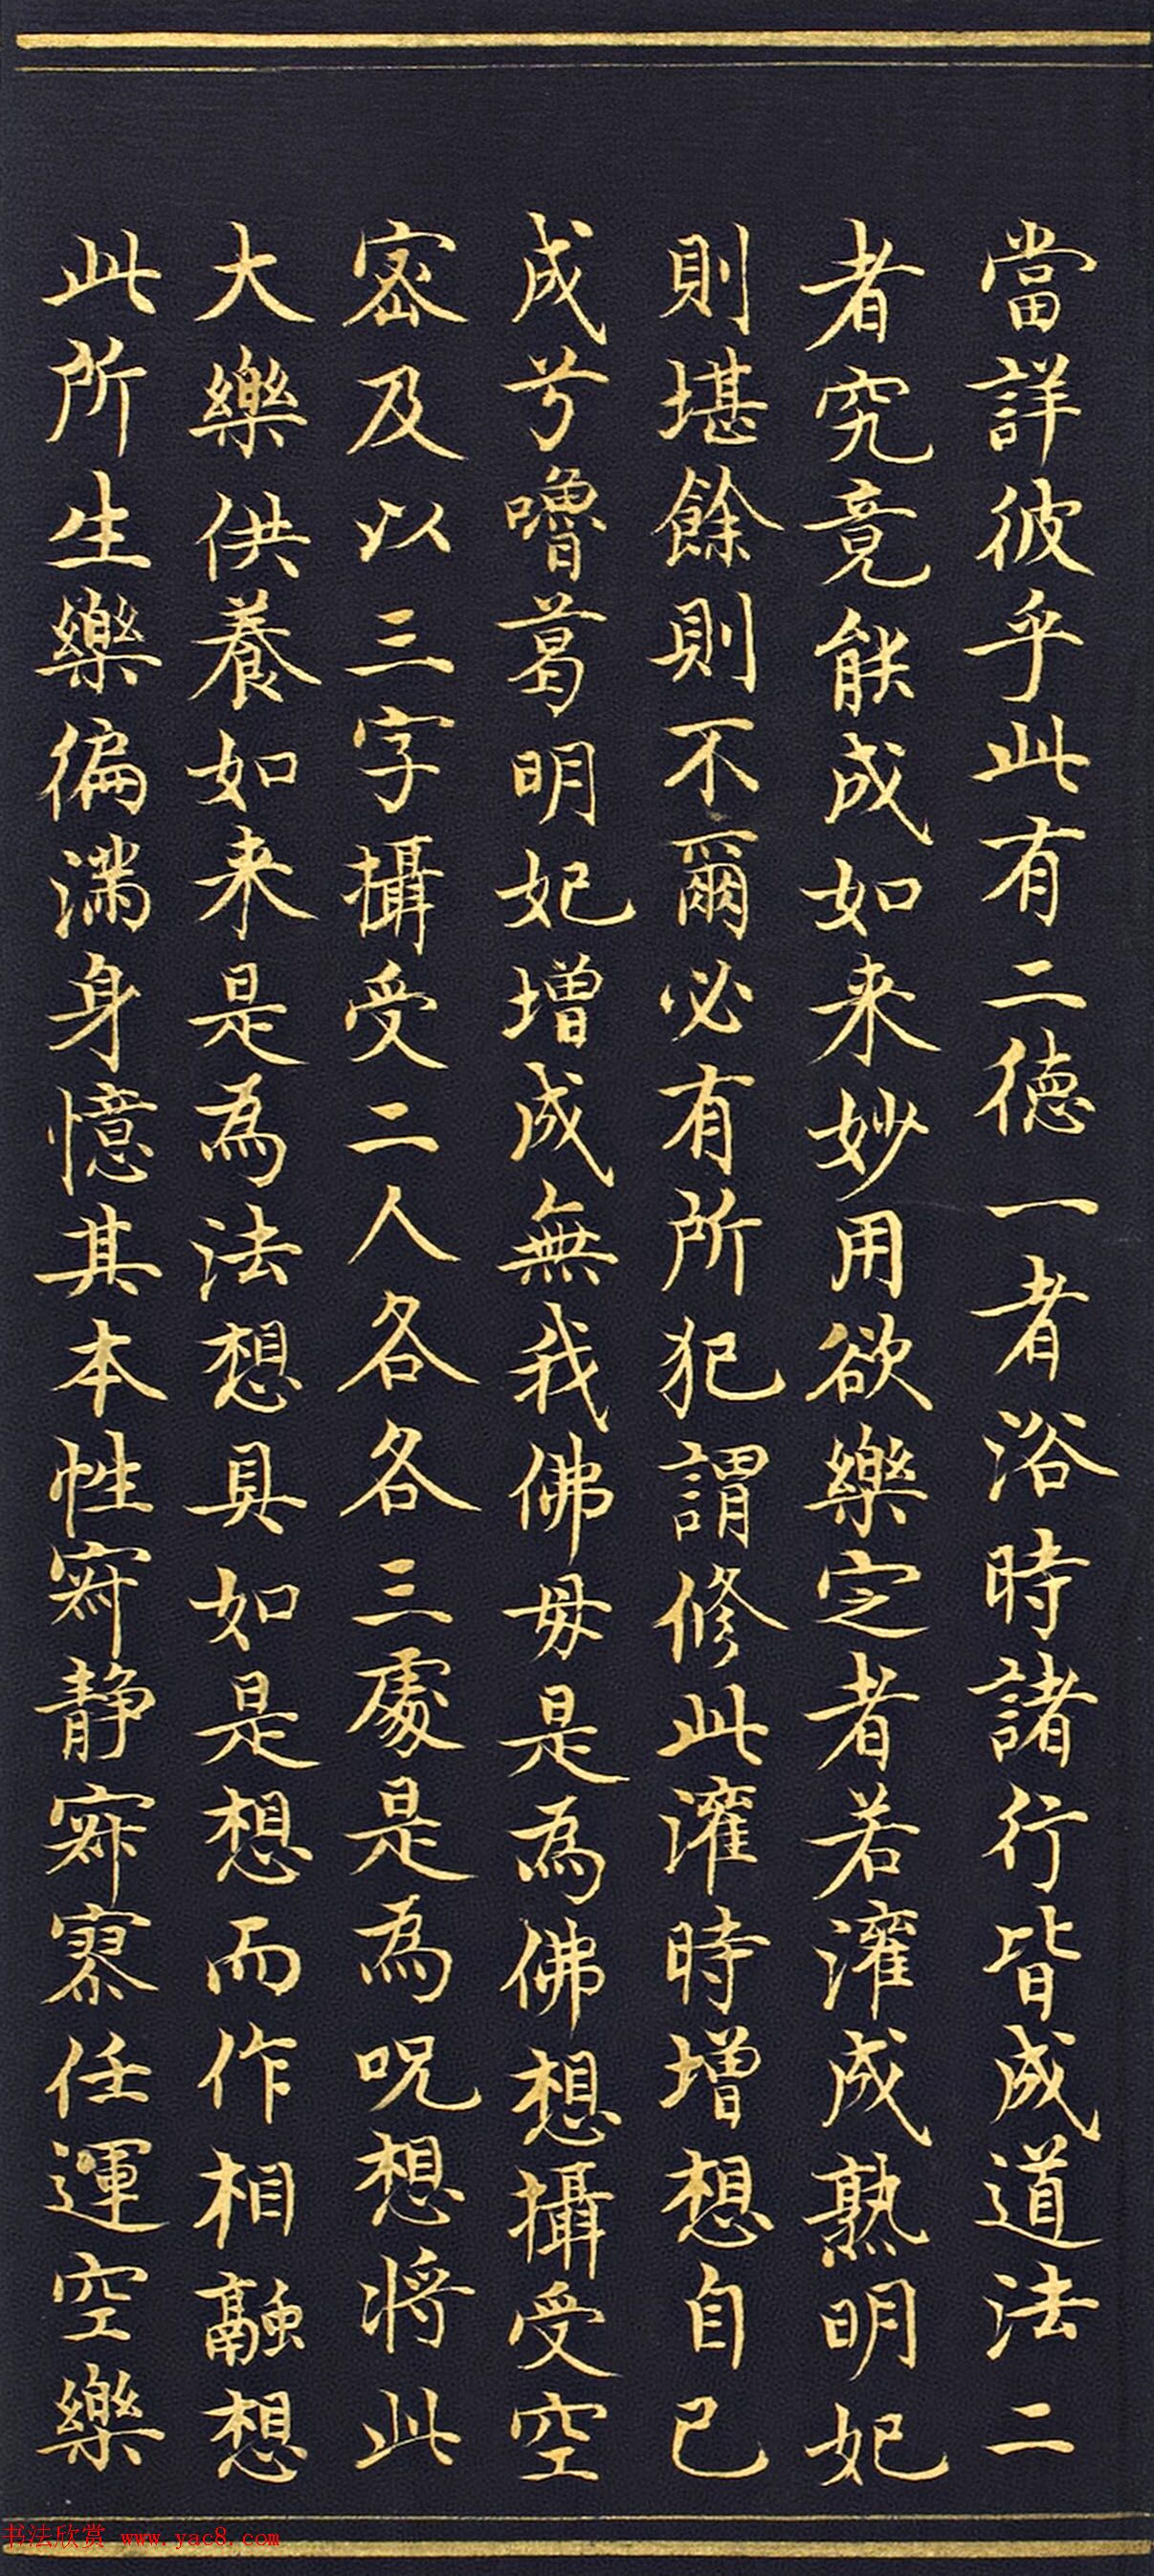 當詳彼乎此有二德一者浴時諸行皆成道法二
者究竟能成如来妙用欲樂定者若灌成熟明妃
則堪餘則不爾必有所犯謂修此灌時增想自已
成兮嚕葛明妃增成無我佛毋是為佛想攝受空
密及以三字攝受二人各各三處是為呪想將此
大樂供養如来是為法想具如是想而作相融想
此所生樂徧滿身憶其本性寂静寂寥任運空樂
书法欣赏 www.yac8.com